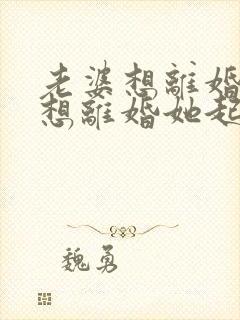 老婆想離婚
想離婚她起
魏勇